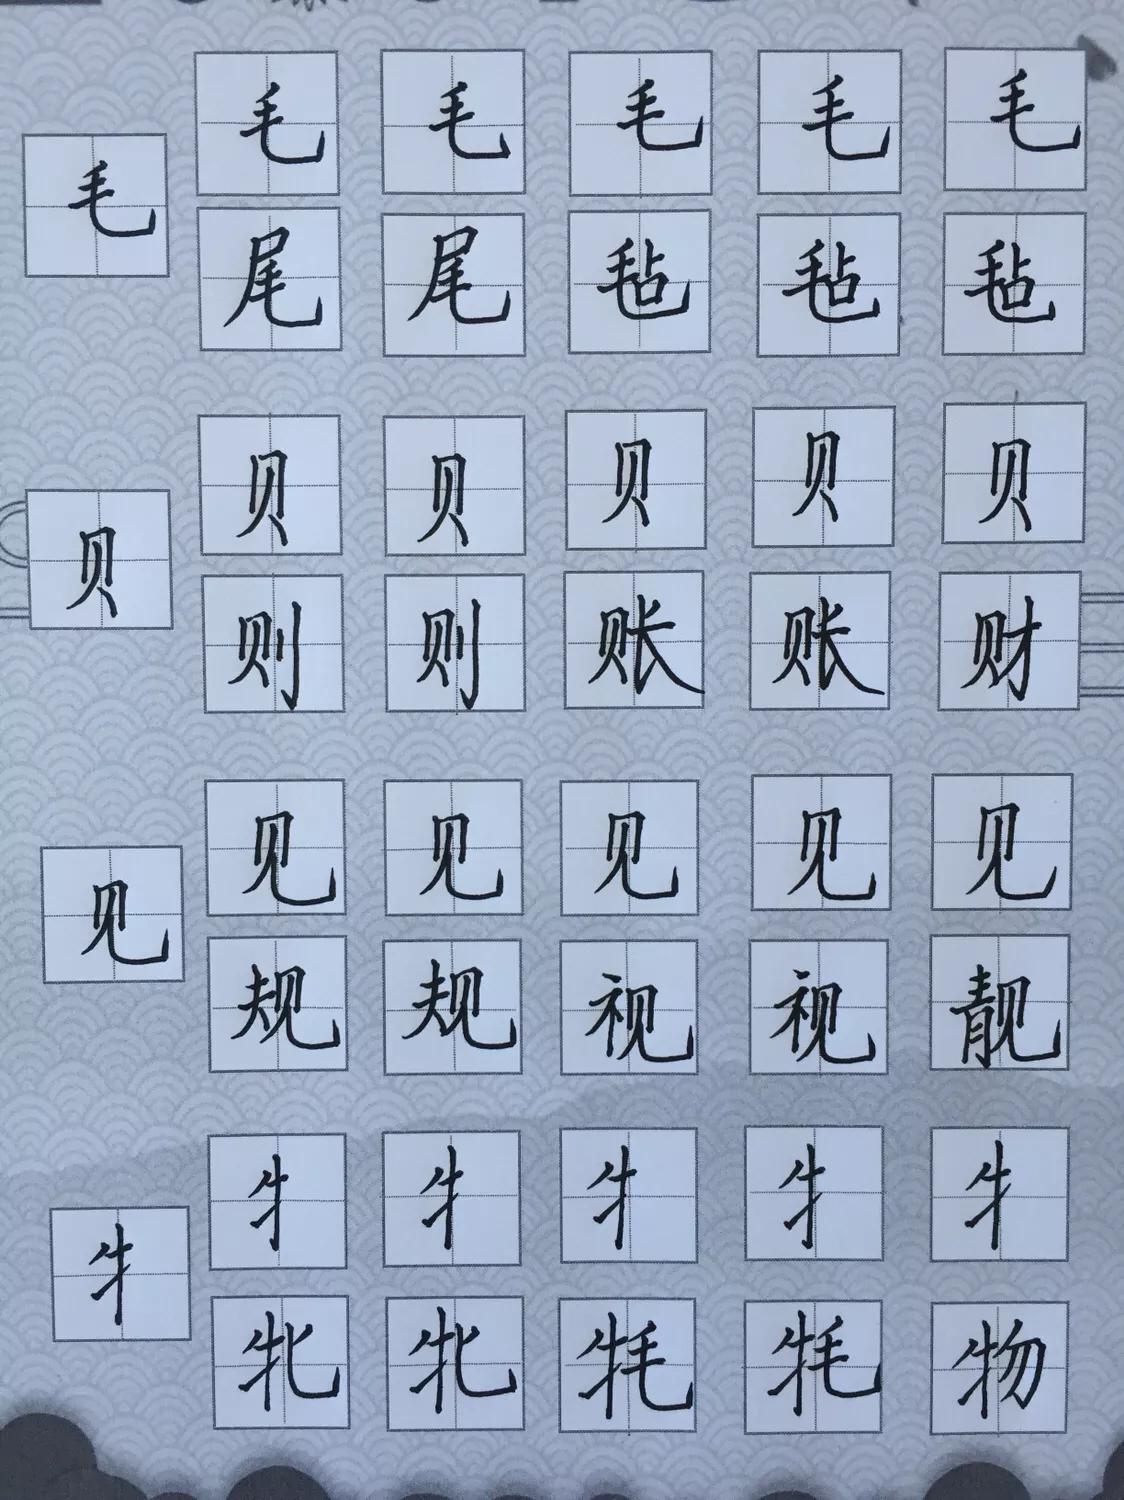 毛 毛 毛 毛 毛
毛
尾 尾 毡 毡 毡
贝 贝 贝 贝 贝
贝
则 则 账 账 财
见 见 见 见 见
见
规 规 视 视 靓
牜 牜 牜 牜 牜
牜
牝 牝 牦 牦 物